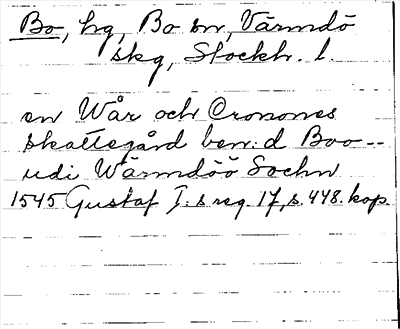 Bo, hg, Bo sn, Värmdö
skg, Stockh. l.
en Wår och Cronones
skattegård ben:d Boo --
udi Wärmdöö Sochn
1545 Gustaf I:s reg. 17, s. 448. kop.